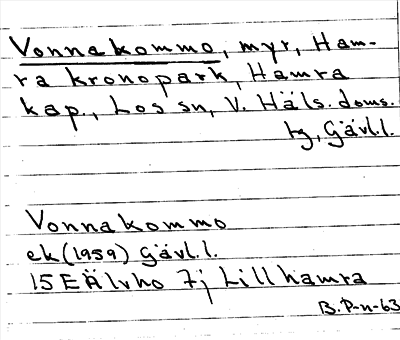 Vonnakommo, myr, Ham-
ra kronopark, Hamra
kap., Los sn, V. Häls. doms.
tg, Gävl.l.
Vonnakommo
ek (1959) Gävl.l.
15E Älvho 7j Lillhamra
B. P-n-63